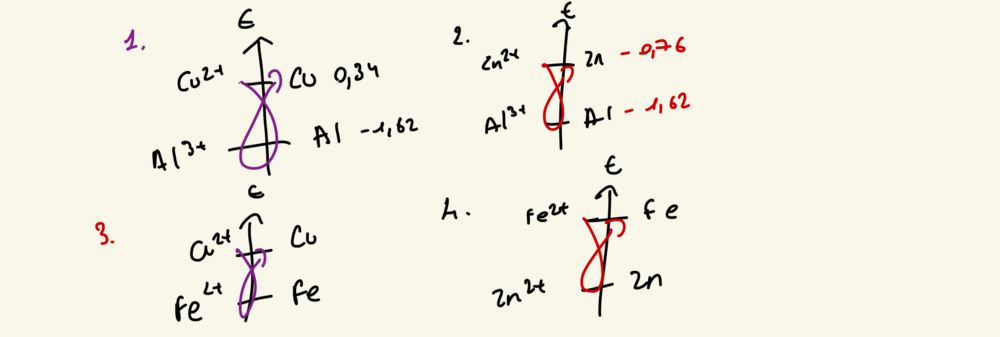 1.
ϵ
Cu²⁺ Cu 0,34
Al³⁺ Al -1,62
2.
ϵ
Zn²⁺ Zn - 0,76
Al³⁺ Al - 1,62
3.
ϵ
Cu²⁺ Cu
Fe²⁺ Fe
4.
ϵ
Fe²⁺ Fe
Zn²⁺ Zn